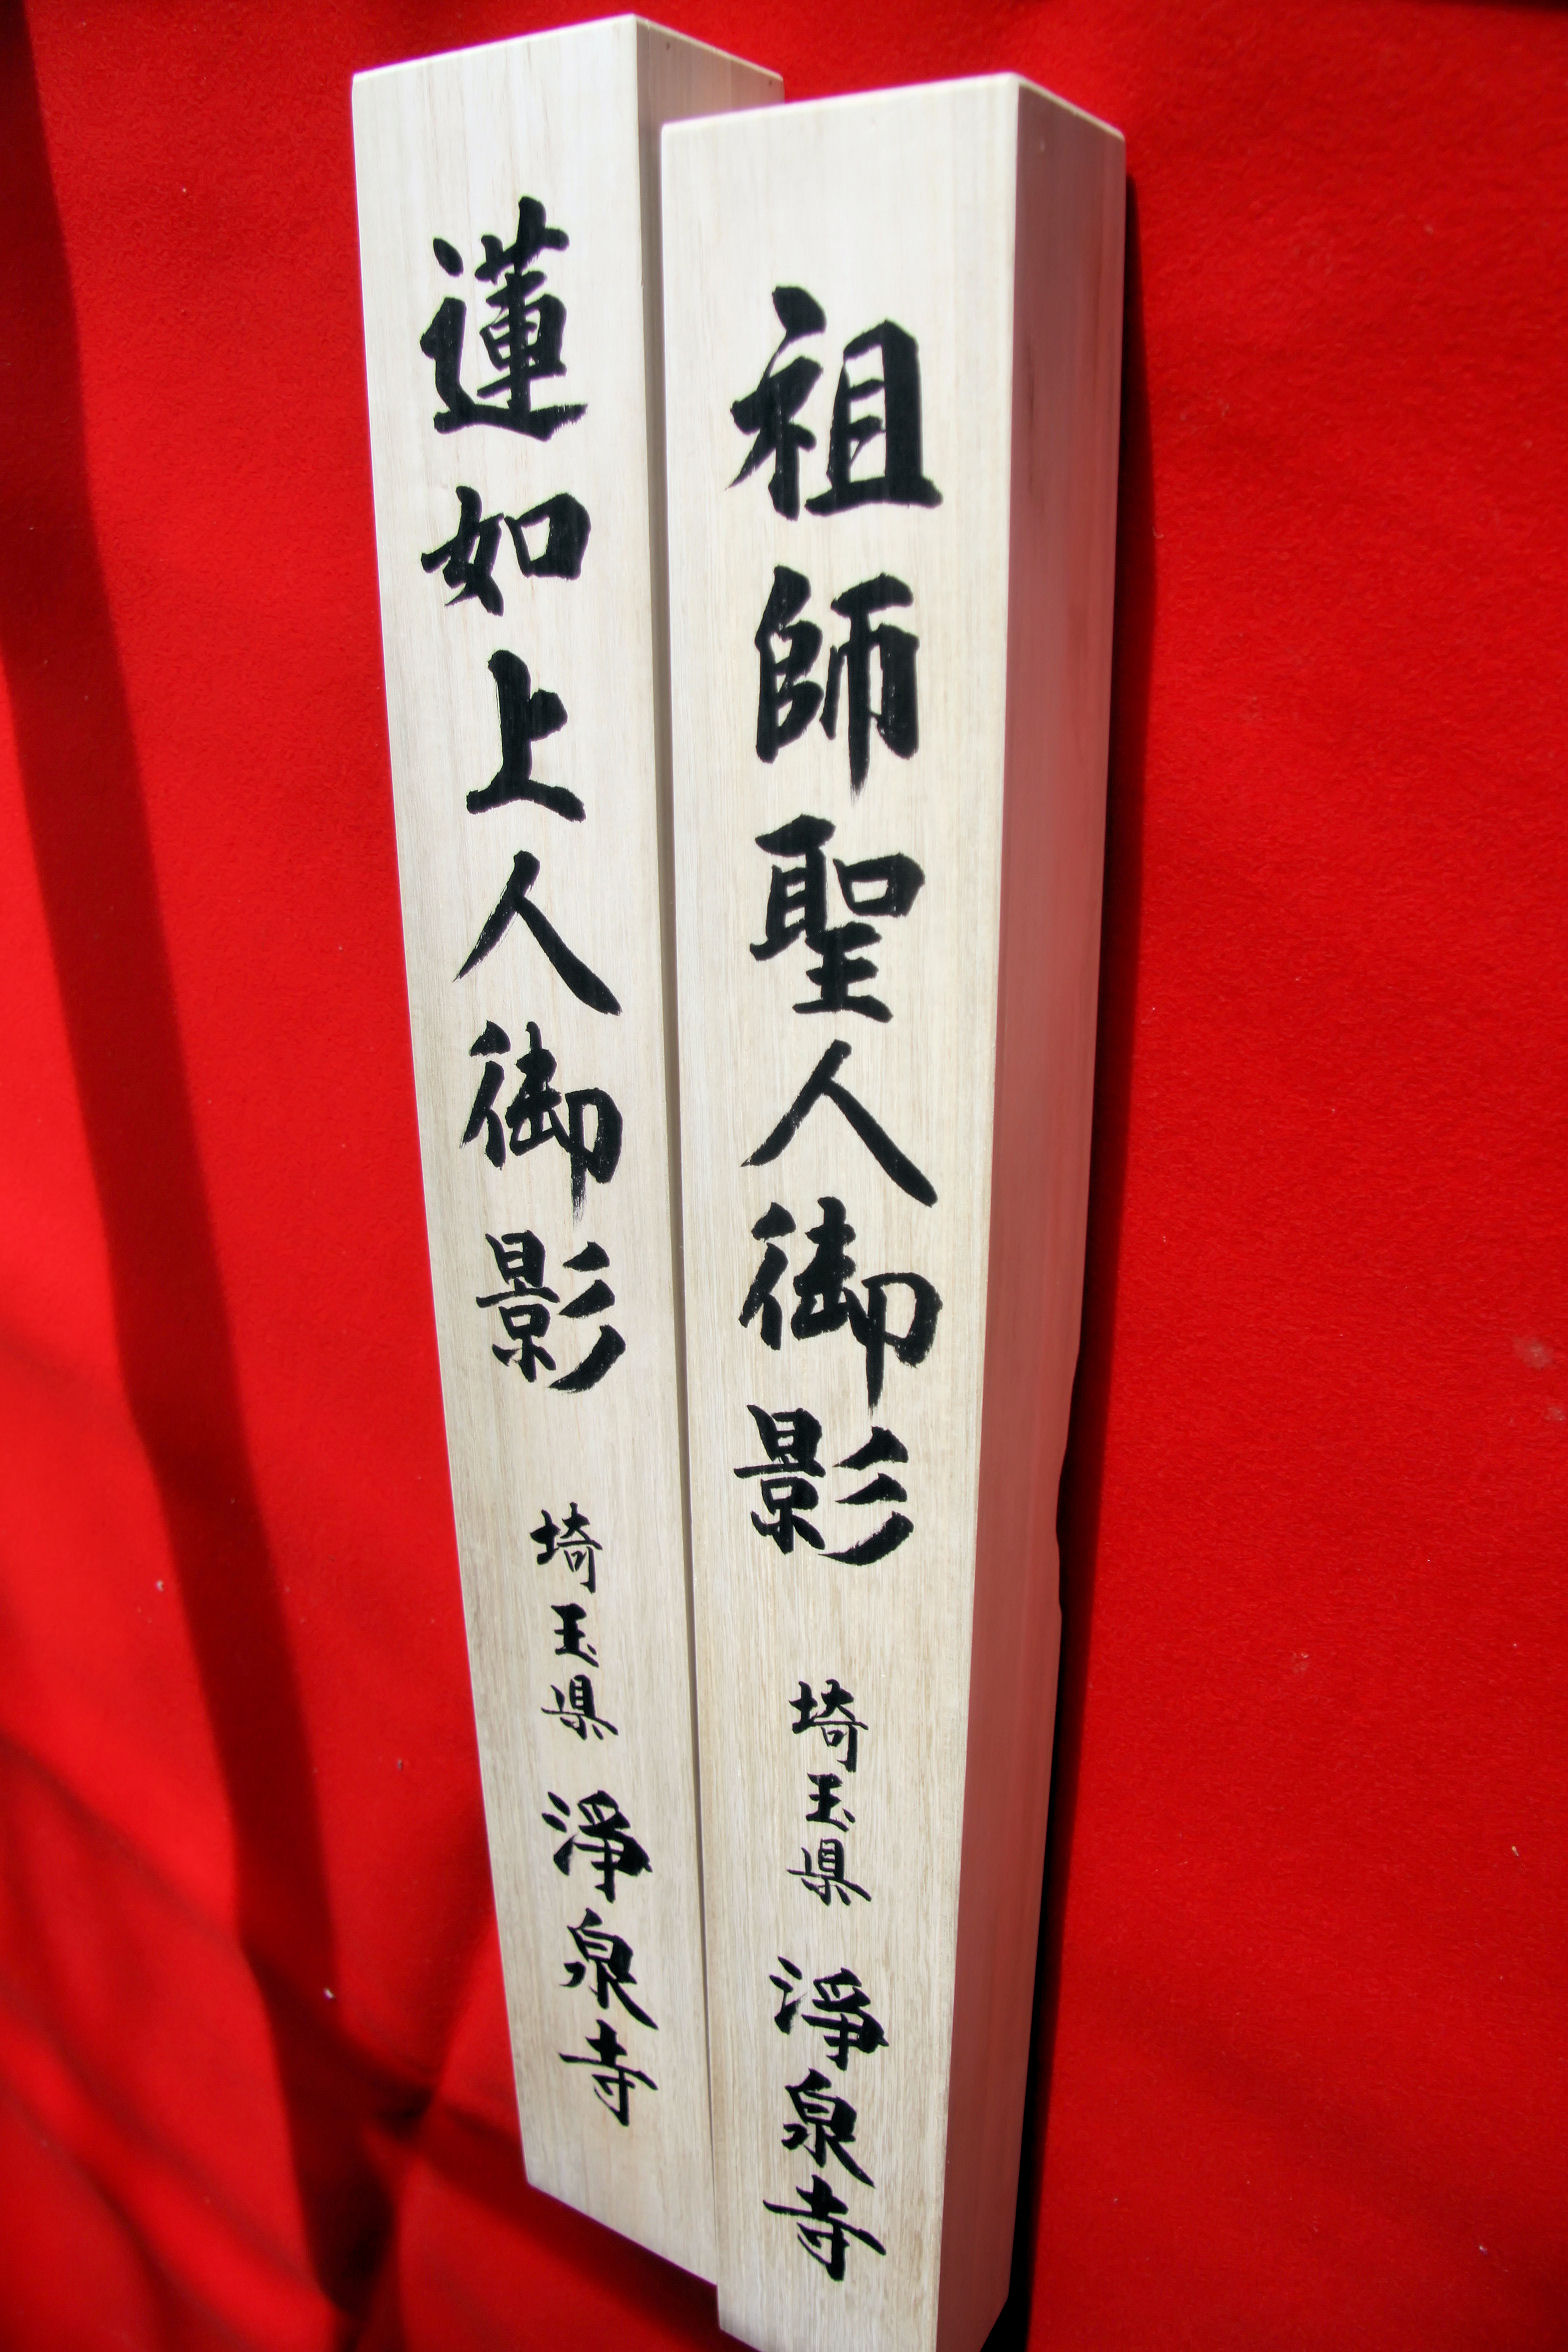 祖師聖人御影 埼玉県 淨泉寺
蓮如上人御影 埼玉県 淨泉寺